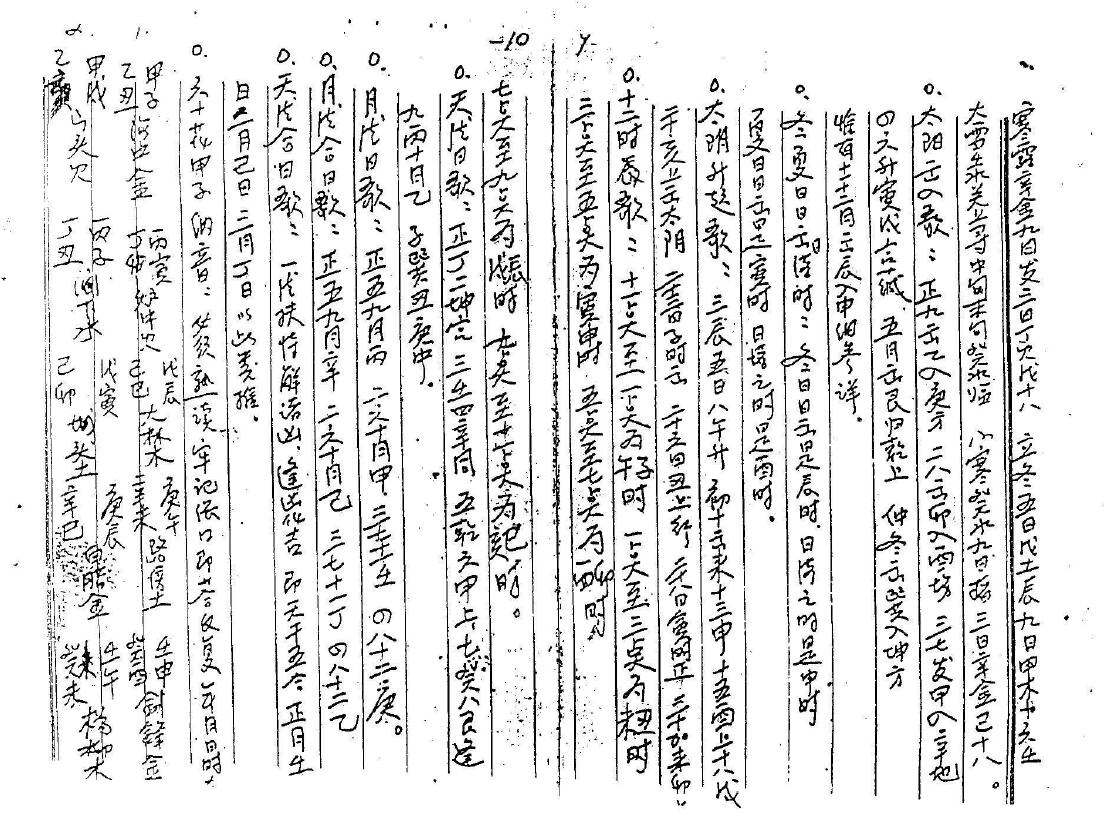 寒露辛金九日发三日丁火戊十八 立冬五日戊土辰九日甲木十六壬
大雪 小寒癸水九日 三日辛金己十八。
0. 太阳出入歌：正九出乙入庚方 二八出卯入酉場 三七发甲入辛地
四六升寅戌 五月出艮归乾上 仲冬出巽入坤方
惟有十十二月出辰入申細参详。
0. 冬夏日日出沒时：冬日日出是辰时，日沒之时是申时
夏日日出是寅时 日塲之时是酉时。
0. 太阴升起歌：三辰五日八午升 初十出未十三申 十五酉上十八戌
二十亥上出太阴 二十三日子时出 二十六日丑上行 二十八日寅时正 三十加来卯
0. 十二时辰歌：十一点大至一点大为子午时 一点大至三点大为丑未时
三点大至五点大为寅申时 五点大至七点大为卯酉时
-10
七点大至九点大为辰戌时 九点大至十一点大为巳亥时。
0. 天德日歌：正丁二坤宫 三壬四辛同 五乾六甲上 七癸八艮逢
九丙十月乙 子巽丑庚中。
0. 月德日歌：正五九月丙 二六十月甲 三七十一壬 四八十二庚。
0. 月德合日歌：正五九月辛 二六十月己 三七十一丁 四八十二乙
0. 天德合日歌：一德扶持解诸凶，逢凶化吉 即天干五合 正月壬
日 二月巳日 三月丁日以此类推。
0. 六十花甲子納音：必须熟读牢记 年月日时
1. 甲子乙丑海中金 丙寅丁卯炉中火 戊辰己巳大林木 庚午辛未路傍土 壬申癸酉剑鋒金
2. 甲戌乙亥山头火 丙子丁丑涧下水 戊寅己卯城头土 庚辰辛巳白腊金 壬午癸未楊柳木